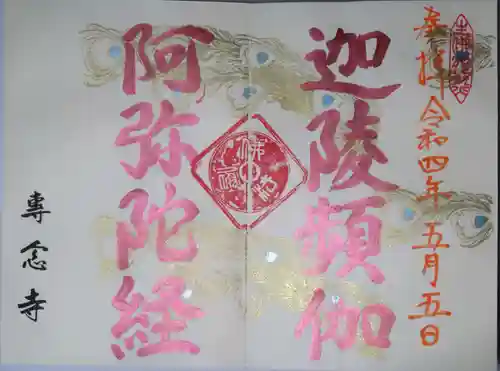 奉拝 令和四年五月五日
迦陵頻伽
阿弥陀経
専念寺